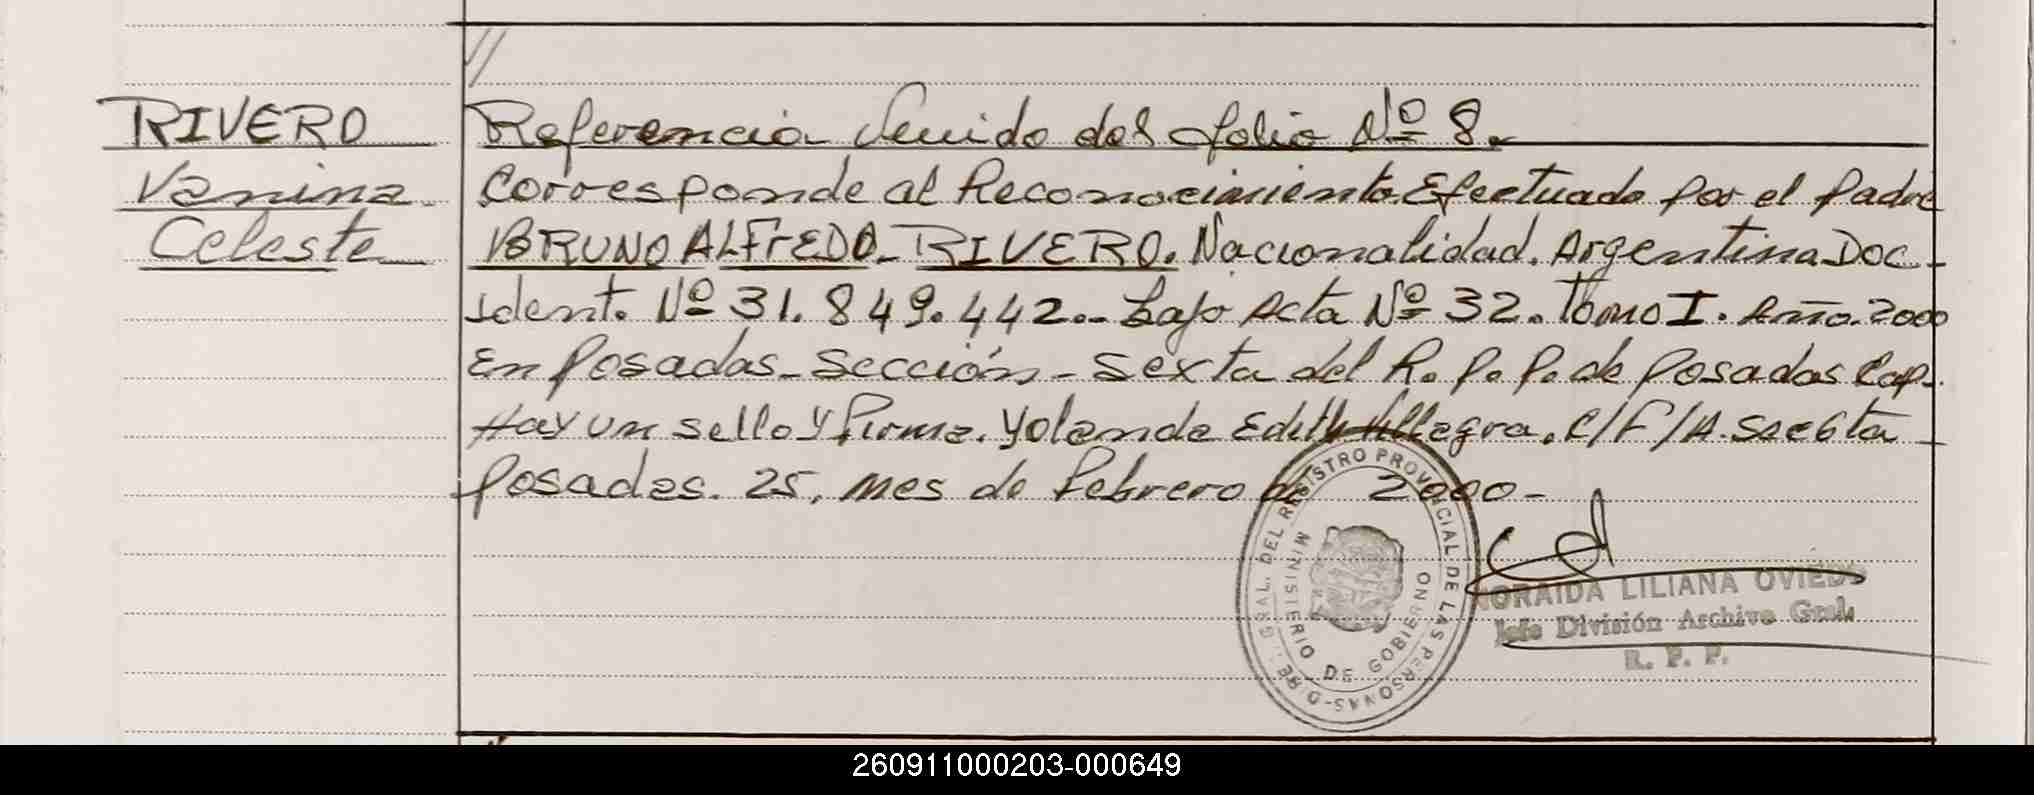 //
RIVERO
Vanina
Celeste
Referencia Venido del folio Nº 8.
Corresponde al Reconocimiento Efectuado por el padre
BRUNO ALFREDO RIVERO. Nacionalidad. Argentina Doc-
ident. Nº 31.849.442.- bajo Acta Nº 32. Tomo I. Año. 2000
En Posadas - Sección - Sexta del R. P. P. de Posadas Cap.
Hay un sello y firma. Yolanda Edith Allegra. C/F/A. Sec 6ta
Posadas. 25, mes de febrero de 2000-
REGISTRO PROVINCIAL DE LAS PERSONAS
GRAL. DEL
MINISTERIO DE GOBIERNO
NORAIDA LILIANA OVIEDO
Jefe División Archivo Gral.
R. P. P.
260911000203-000649